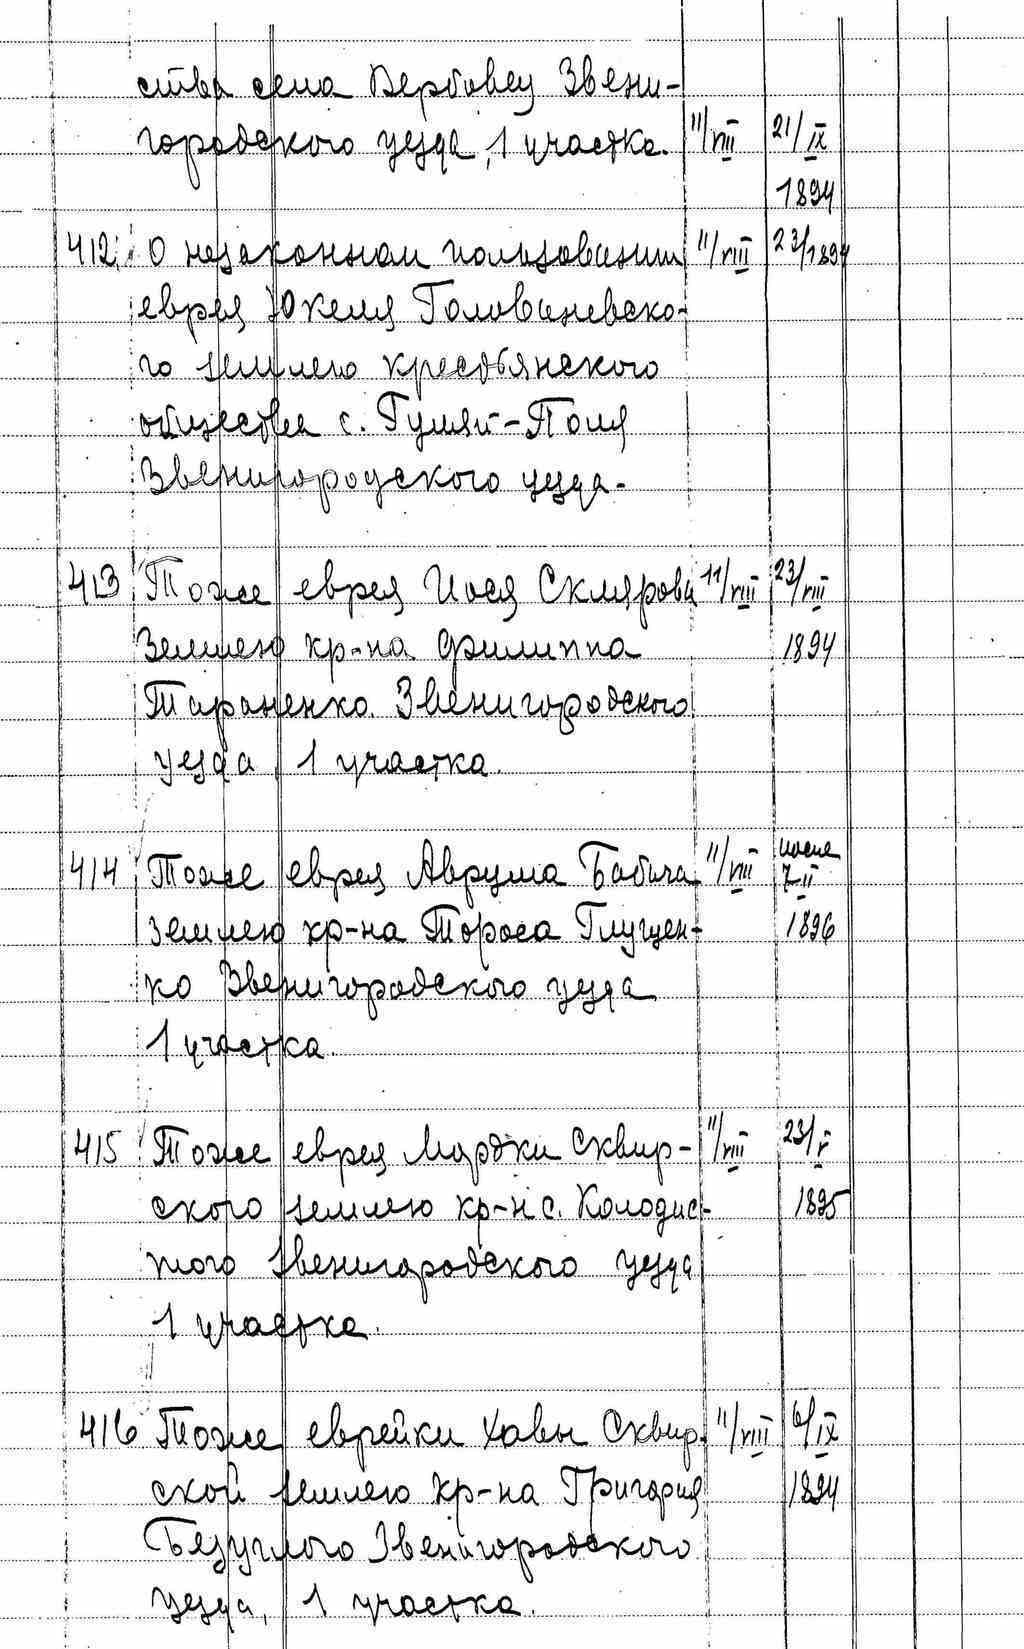 ства села Вербовец Звени-
городского уезда, 1 участка. 11/VIII 21/IX
1894
412. О незаконном пользовании 11/VIII 23/1894
еврея Юкеля Головиневско-
го землею крестьянского
общества с. Гуляй-Поля
Звенигородского уезда.
413 Тоже еврея Иося Склярова 11/VIII 23/VIII
Землею кр-на Филиппа 1894
Тараненко Звенигородского
уезда 1 участка.
414 Тоже еврея Аврума Бабича 11/VIII после 7/II
землею кр-на Тараса Глущен- 1896
ко Звенигородского уезда
1 участка.
415 Тоже еврея Мордки Сквир- 11/VIII 23/V
ского землею кр-н с. Колодис- 1895
того Звенигородского уезда
1 участка.
416 Тоже еврейки Хавы Сквир- 11/VIII 6/IX
ской землею кр-на Григория 1894
Безуглого Звенигородского
уезда, 1 участка.